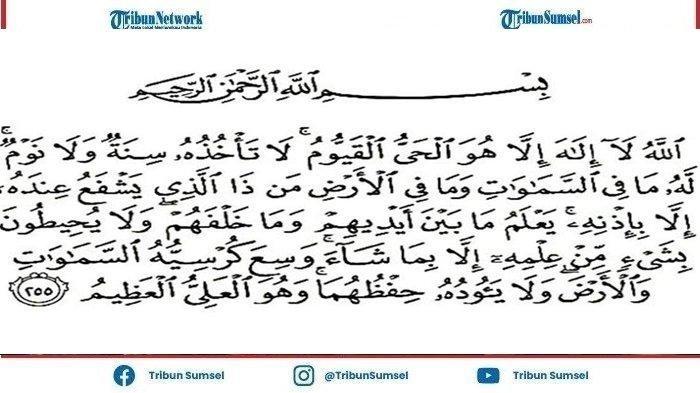 TribunNetwork
Mata Lokal Menjangkau Indonesia
TribunSumsel.com
بِسْمِ ٱللَّهِ ٱلرَّحْمَٰنِ ٱلرَّحِيمِ
ٱللَّهُ لَآ إِلَٰهَ إِلَّا هُوَ ٱلْحَىُّ ٱلْقَيُّومُ ۚ لَا تَأْخُذُهُۥ سِنَةٌ وَلَا نَوْمٌ ۚ
لَّهُۥ مَا فِى ٱلسَّمَٰوَٰتِ وَمَا فِى ٱلْأَرْضِ مَن ذَا ٱلَّذِى يَشْفَعُ عِندَهُۥٓ
إِلَّا بِإِذْنِهِۦ ۚ يَعْلَمُ مَا بَيْنَ أَيْدِيهِمْ وَمَا خَلْفَهُمْ ۖ وَلَا يُحِيطُونَ
بِشَىْءٍ مِّنْ عِلْمِهِۦٓ إِلَّا بِمَا شَآءَ ۚ وَسِعَ كُرْسِيُّهُ ٱلسَّمَٰوَٰتِ
وَٱلْأَرْضَ ۖ وَلَا يَـُٔودُهُۥ حِفْظُهُمَا ۚ وَهُوَ ٱلْعَلِىُّ ٱلْعَظِيمُ ٢٥٥
Tribun Sumsel
@TribunSumsel
Tribun Sumsel